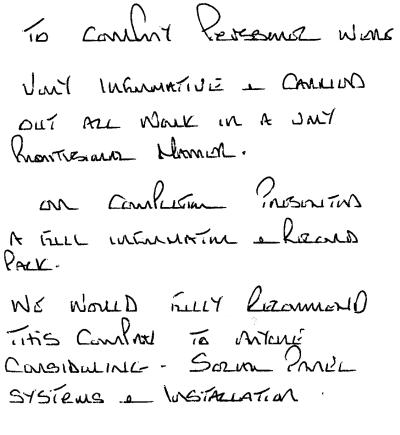 TO COMPANY PERSONNEL WERE
VERY INFORMATIVE & CARRIED
OUT ALL WORK IN A VERY
PROFESSIONAL MANNER.
ON COMPLETION PRESENTED
A FULL INFORMATION & RECORD
PACK.
WE WOULD FULLY RECOMMEND
THIS COMPANY TO ANYONE
CONSIDERING - SOLAR PANEL
SYSTEMS & INSTALLATION.